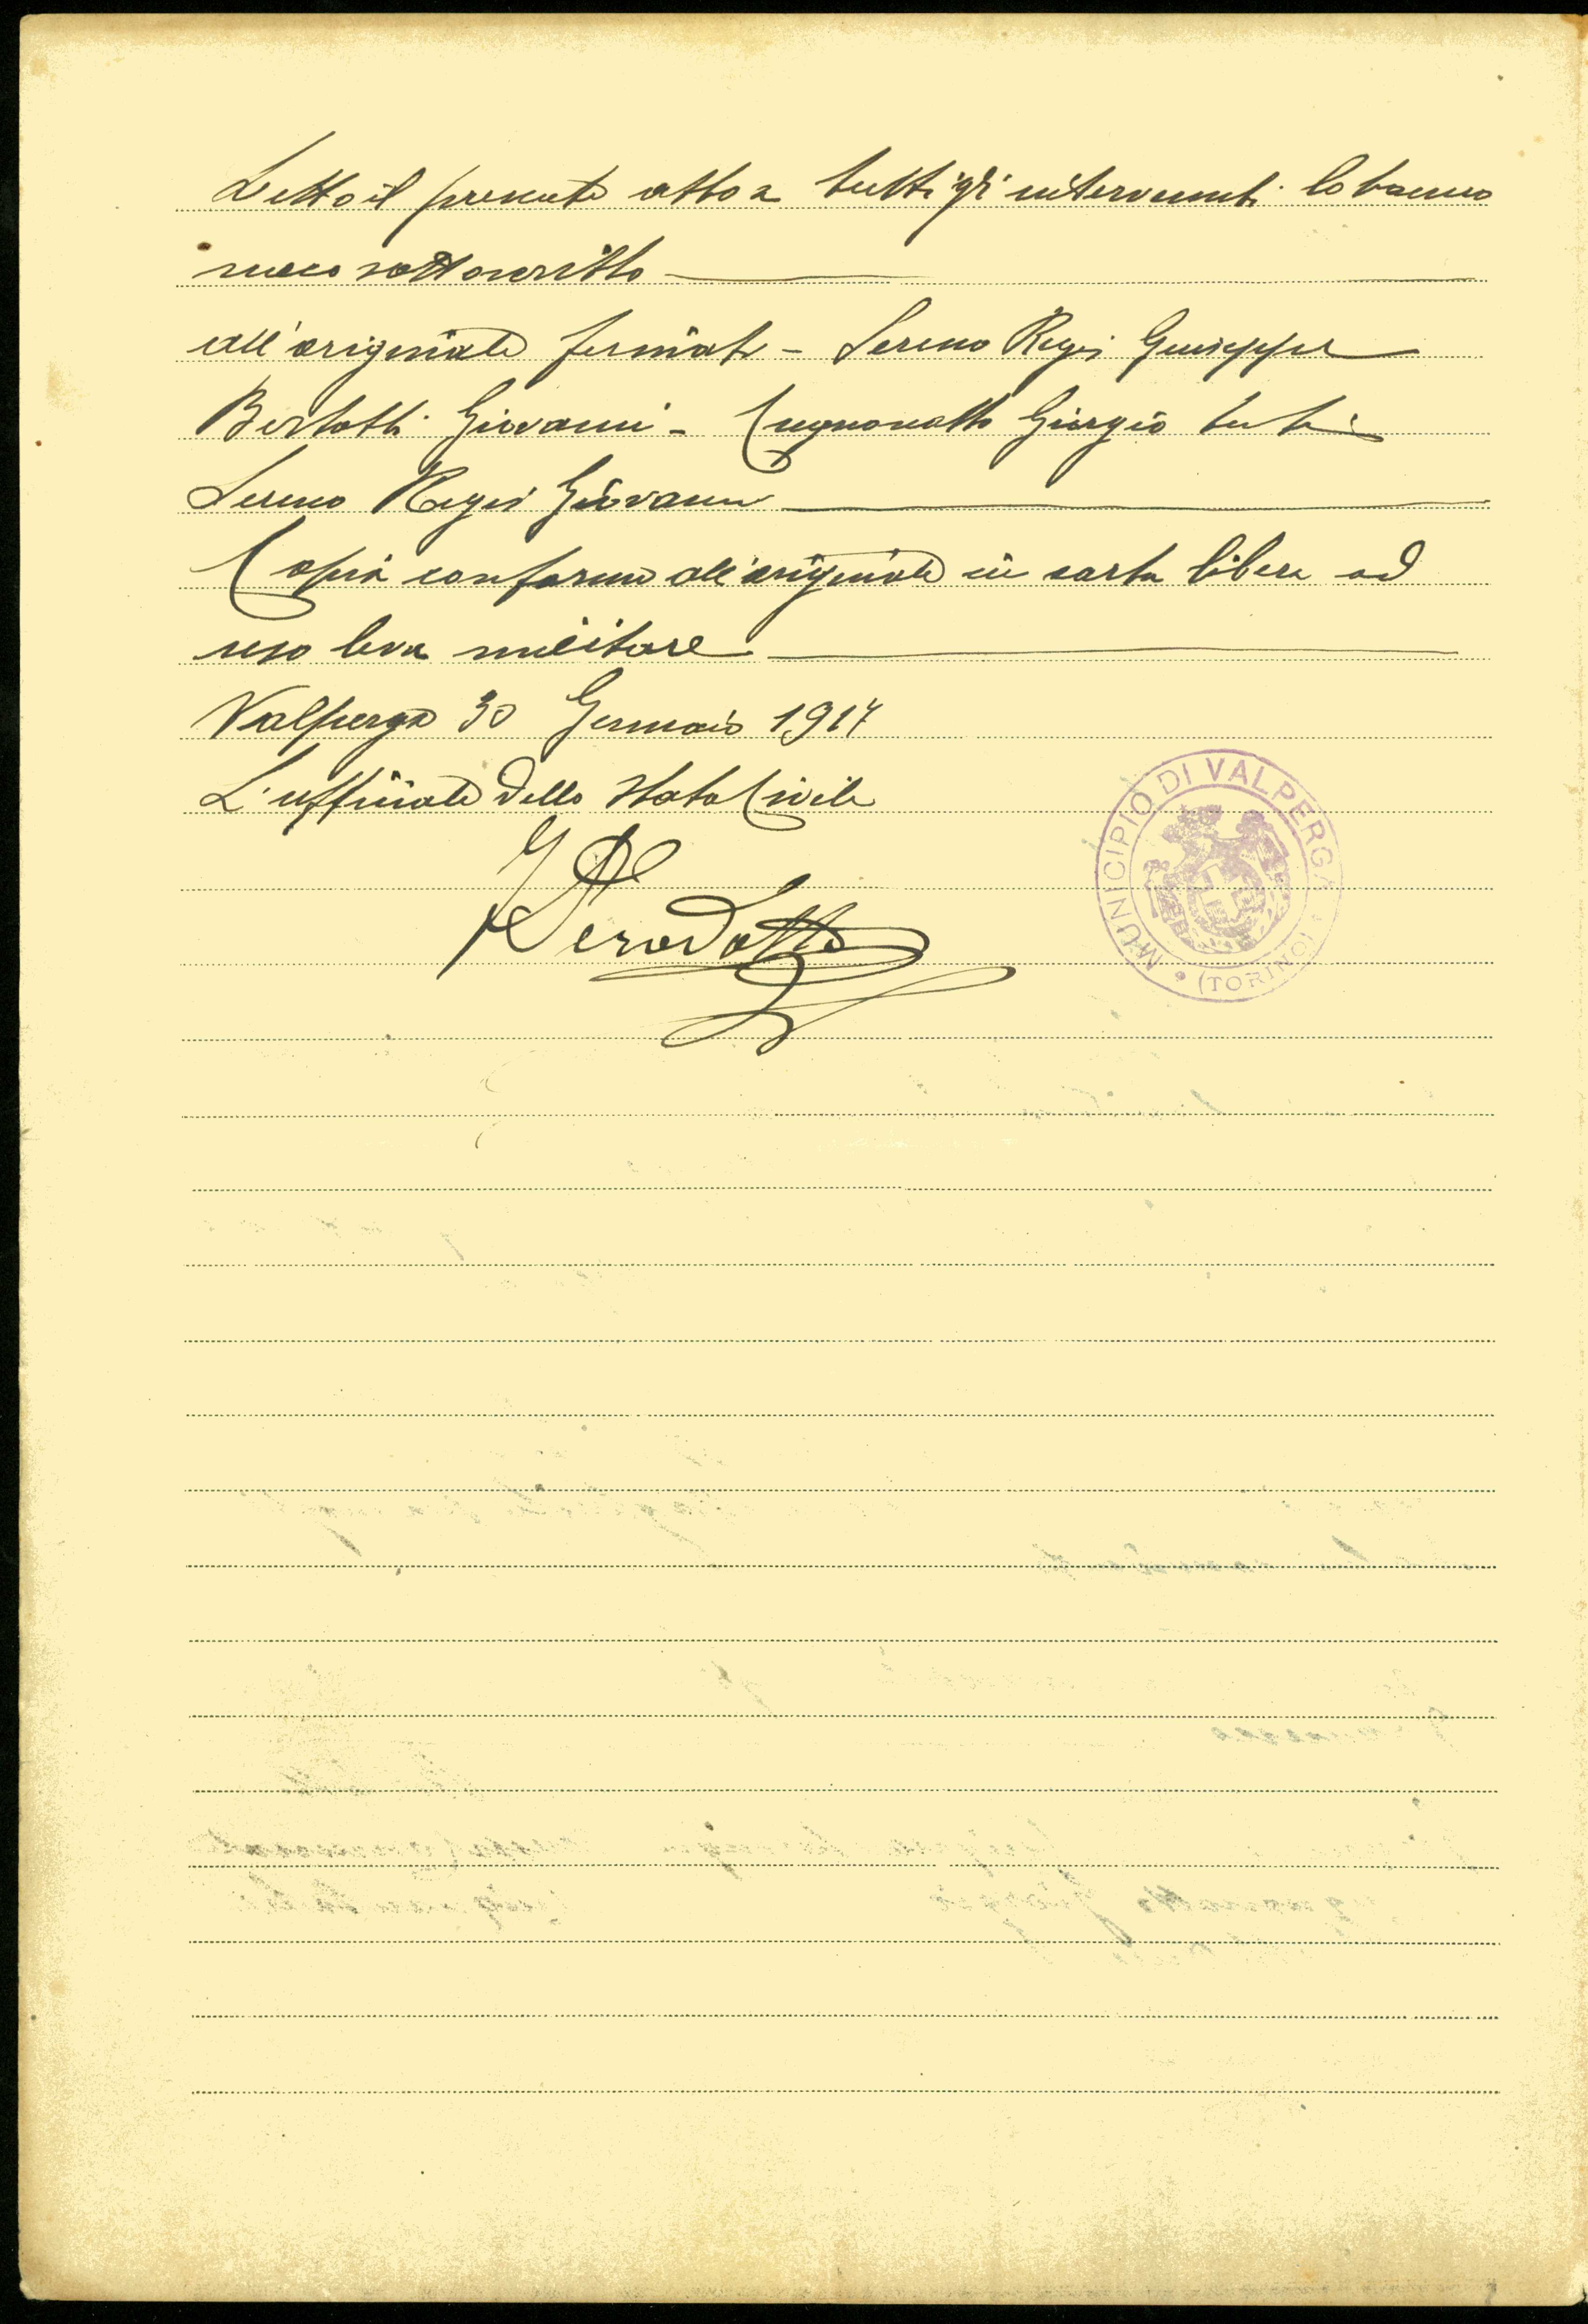 Letto il presente atto a tutti gli intervenuti lo hanno
meco sottoscritto
all'originale firmati - Sereno Regis Giuseppe
Bertotti Giovanni - Cugnonatto Giorgio testi
Sereno Regis Giovanni
Copia conforme all'originale in carta libera ad
uso leva militare
Valperga 30 Gennaio 1917
L'uffiziale dello Stato Civile
MUNICIPIO DI VALPERGA
(TORINO)